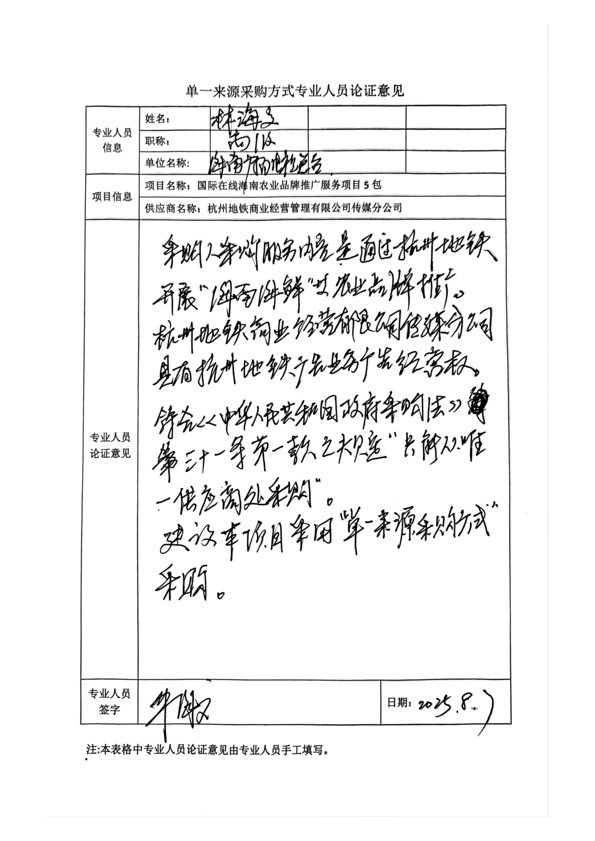 单一来源采购方式专业人员论证意见
专业人员
信息
姓名： 林海文
职称： 高级
单位名称：
项目信息
项目名称：国际在线海南农业品牌推广服务项目 5 包
供应商名称：杭州地铁商业经营管理有限公司传媒分公司
专业人员
论证意见
采购人采购服务内容是通过杭州地铁
开展“海南海鲜”农业品牌推广。
杭州地铁商业经营有限公司传媒分公司
具有杭州地铁广告业务广告经营权。
符合《中华人民共和国政府采购法》
第三十一条第一款之规定“只能从唯
一供应商处采购”。
建议本项目采用“单一来源采购方式”
采购。
专业人员
签字
日期：2025.8.7
注:本表格中专业人员论证意见由专业人员手工填写。